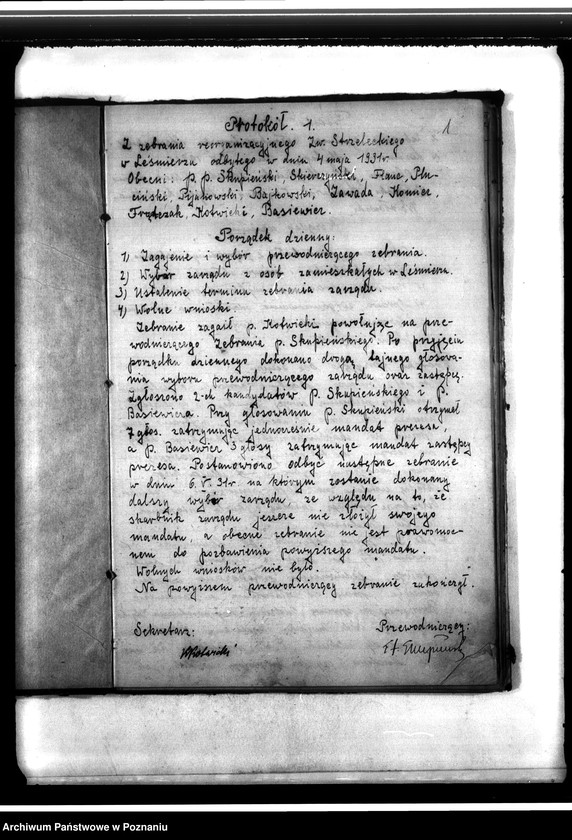 Protokół. 1.
1
Z zebrania reorganizacyjnego Zw. Strzeleckiego
w Leśmierzu odbytego w dniu 4 maja 1931r.
Obecni: p.p. Skupieński, Skierczyński, Flanc, Plu-
ciński, Pijanowski, Bajkowski, Zawada, Komiec,
Frątczak, Kotwicki, Basiewicz.
Porządek dzienny:
1) Zagajenie i wybór przewodniczącego zebrania.
2) Wybór zarządu z osób zamieszkałych w Leśmierzu.
3) Ustalenie terminu zebrania zarządu.
4) Wolne wnioski.
Zebranie zagaił p. Kotwicki powołując na prze-
wodniczącego zebrania p. Skupieńskiego. Po przyjęciu
porządku dziennego dokonano drogą tajnego głosowa-
nia wyboru przewodniczącego zarządu oraz zastępcę.
Zgłoszono 2-ch kandydatów p. Skupieńskiego i p.
Basiewicza. Przy głosowaniu p. Skupieński otrzymał
7 głos. zatrzymując jednocześnie mandat prezesa,
a p. Basiewicz 3 głosy zatrzymując mandat zastępcy
prezesa. Postanowiono odbyć następne zebranie
w dniu 6.V.31r. na którym zostanie dokonany
dalszy wybór zarządu, ze względu na to, że
skarbnik zarządu jeszcze nie złożył swojego
mandatu, a obecne zebranie nie jest prawomoc-
nem do pozbawienia powyższego mandatu.
Wolnych wniosków nie było.
Na powyższem przewodniczący zebranie zakończył.
Sekretarz:
Przewodniczący:
WKotwicki
Archiwum Państwowe w Poznaniu